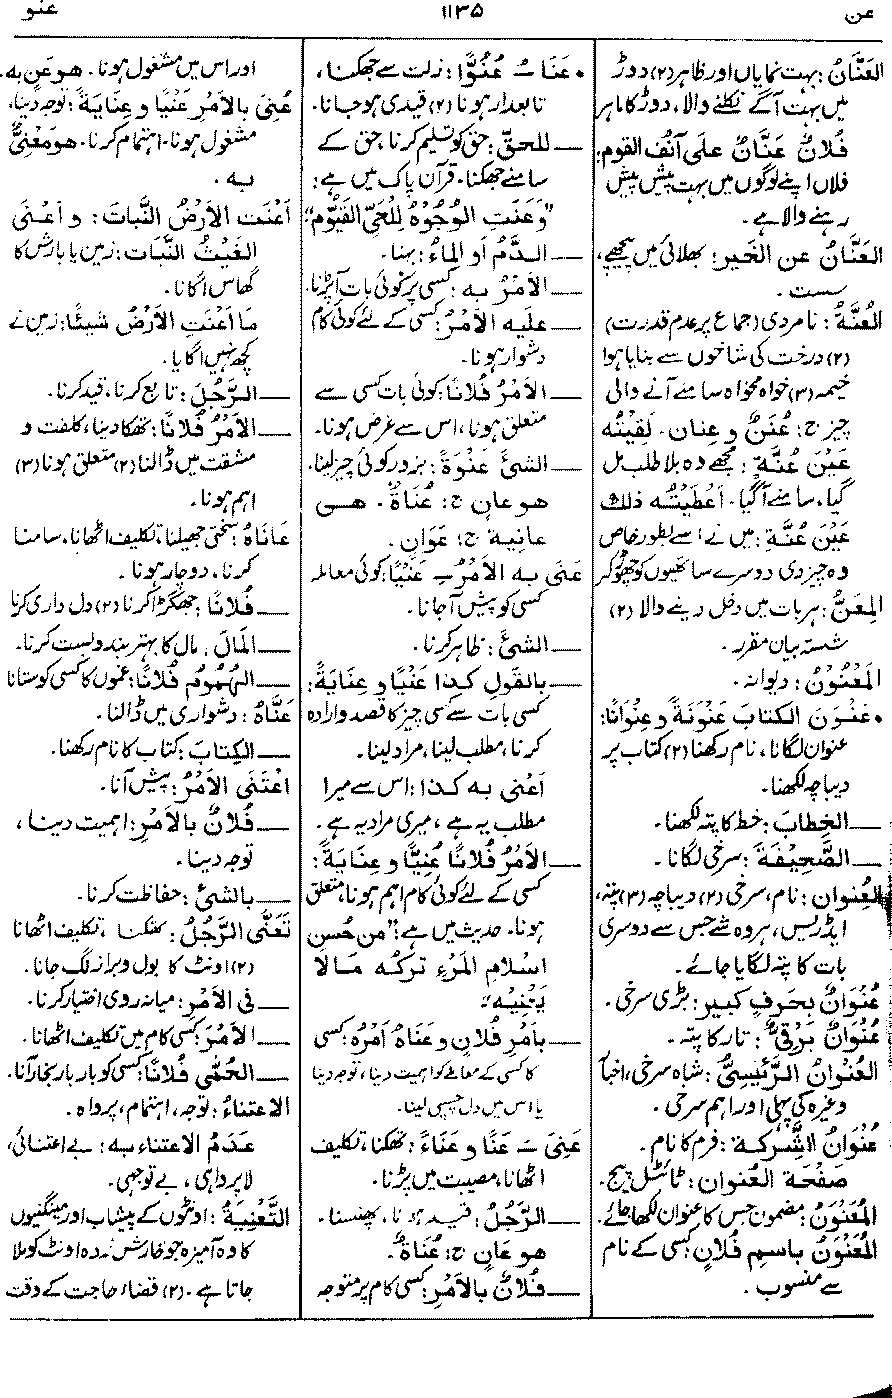 عن
۱۱۳۵
عنو
العَنَّانُ: بہت نمایاں اور ظاہر (۲) دوڑ
میں بہت آگے نکلنے والا، دوڑ کا ماہر
فُلانٌ عَنَّانٌ علی آنُفِ القومِ:
فلاں اپنے لوگوں میں بہت پیش پیش
رہنے والا ہے۔
العَنَّانُ عن الخَیرِ: بھلائی میں پیچھے،
سست۔
العُنَّةُ: نامردی (جماع پر عدم قدرت)
(۲) درخت کی شاخوں سے بنایا ہوا
خیمہ (۳) خواہ مخواہ سامنے آنے والی
چیز ج: عُنَنٌ و عِنان۔ لَقِیتُه
عَیْنَ عُنَّةٍ: مجھے وہ بلا طلب مل
گیا، سامنے آگیا۔ اَعْطَیْتُه ذلك
عَیْنَ عُنَّةٍ: میں نے اسے بطور خاص
وہ چیز دی دوسرے ساتھیوں کو چھوڑ کر
المِعَنُّ: ہر بات میں دخل دینے والا (۲)
شستہ بیان مقرر۔
المَعْنُوْنُ: دیوانہ۔
• عَنْوَنَ الکتابَ عَنْوَنَةً و عِنْوَانًا:
عنوان لگانا، نام رکھنا (۲) کتاب پر
دیباچہ لکھنا۔
— الخِطابَ: خط کا پتہ لکھنا۔
— الصَّحِیْفَةَ: سرخی لگانا۔
العُِنوان: نام، سرخی (۲) دیباچہ (۳) پتہ،
ایڈریس، ہر وہ شے جس سے دوسری
بات کا پتہ لگایا جائے۔
عُنْوَانٌ بحَرفٍ کبیر: بڑی سرخی۔
عُنْوَانٌ بَرْقِیٌّ: تار کا پتہ۔
العُنْوَانُ الرَّئِیسِیُّ: شاہ سرخی، اخبار
وغیرہ کی پہلی اور اہم سرخی۔
عُنْوَانُ الشَّرِکة: فرم کا نام۔
صَفْحَة العُنوان: ٹائٹل پیج۔
المُعَنْوَن: مضمون جس کا عنوان لکھا جائے۔
المُعَنْوَنُ باسمِ فُلانٍ: کسی کے نام
سے منسوب۔
• عَنَا ـُـ عُنُوًّا: ذلت سے جھکنا،
تابعدار ہونا (۲) قیدی ہو جانا۔
— للحقِّ: حق کو تسلیم کرنا، حق کے
سامنے جھکنا۔ قرآن پاک میں ہے:
"وَعَنَتِ الْوُجُوْهُ لِلْحَیِّ القَیُّوْمِ"؛
— الدَّمُ أو الماءُ: بہنا۔
— الأمْرُ به: کسی پر کوئی بات آپڑنا۔
— علیه الأمْرُ: کسی کے لئے کوئی کام
دشوار ہونا۔
— الأمْرُ فُلانًا: کوئی بات کسی سے
متعلق ہونا، اس سے غرض ہونا۔
— الشئَ عَنْوَةً: بزور کوئی چیز لینا۔
هو عانٍ ج: عُنَاةٌ۔ هی
عانیة ج: عَوَانٍ۔
عَنَی به الأمْرُ ـِـ عَنْیًا: کوئی معاملہ
کسی کو پیش آجانا۔
— الشئَ: ظاہر کرنا۔
— بالقَولِ کذا عَنْیًا و عِنَایَةً:
کسی بات سے کسی چیز کا قصد و ارادہ
کرنا، مطلب لینا، مراد لینا۔
أَعْنِی به کذا: اس سے میرا
مطلب یہ ہے، میری مراد یہ ہے۔
— الأمْرُ فُلانًا عُنِیًّا و عِنَایَةً:
کسی کے لئے کوئی کام اہم ہونا، متعلق
ہونا۔ حدیث میں ہے: "مِن حُسنِ
اسْلامِ المَرْءِ تَرْکُه مَا لا
یَعْنِیْه"؛
— بأمْرِ فُلانٍ و عَنَاهُ أمْرُه: کسی
کا کسی کے معاملے کو اہمیت دینا، توجہ دینا
یا اس میں دل چسپی لینا۔
عَنِیَ ـَـ عَنًا و عَنَاءً: تھکنا، تکلیف
اٹھانا، مصیبت میں پڑنا۔
— الرَّجُلُ: قید ہونا، پھنسنا۔
هو عانٍ ج: عُنَاةٌ۔
— فُلانٌ بالأمْرِ: کسی کام پر متوجہ
اور اس میں مشغول ہونا۔ هو عَنٍ به۔
عُنِیَ بالأمْرِ عَنْیًا و عِنَایَةً: توجہ دینا،
مشغول ہونا۔ اہتمام کرنا۔ هو مَعْنِیٌّ
به۔
أعْنَتِ الأرْضُ النَّباتَ: و أعْنَی
الغَیْثُ النَّبَاتَ: زمین یا بارش کا
گھاس اگانا۔
مَا اعْنَتِ الأرْضُ شَیئًا: زمین نے
کچھ نہیں اگایا۔
— الرَّجُلَ: تابع کرنا، قید کرنا۔
— الأمْرُ فُلانًا: تھکا دینا، کلفت و
مشقت میں ڈالنا (۲) متعلق ہونا (۳)
اہم ہونا۔
عَانَاهُ: سختی جھیلنا، تکلیف اٹھانا، سامنا
کرنا، دوچار ہونا۔
— فُلانًا: جھگڑا کرنا (۲) دل داری کرنا
— المَالَ: مال کا بہتر بندوبست کرنا۔
— الهُمُوْمُ فُلانًا: غموں کا کسی کو ستانا
عَنَّاهُ: دشواری میں ڈالنا۔
— الکِتابَ: کتاب کا نام رکھنا۔
اعْتَنَی الأمْرُ: پیش آنا۔
— فُلانٌ بالأمْرِ: اہمیت دینا،
توجہ دینا۔
— بالشئِ: حفاظت کرنا۔
تَعَنَّی الرَّجُلُ: تھکنا، تکلیف اٹھانا
(۲) اونٹ کا بول و براز لگ جانا۔
— فی الأمْرِ: میانہ روی اختیار کرنا۔
— الأمْرَ: کسی کام میں تکلیف اٹھانا۔
— الحُمَّی فُلانًا: کسی کو بار بار بخار آنا۔
الاعتناءُ: توجہ، اہتمام، پرواہ۔
عَدَمُ الاعتناءِ به: بے اعتنائی،
لاپرواہی، بے توجہی۔
التَّعْنِیَةُ: اونٹوں کے پیشاب اور مینگنیوں
کا وہ آمیزہ جو خارش زدہ اونٹ کو ملا
جاتا ہے۔ (۲) قضاء حاجت کے وقت